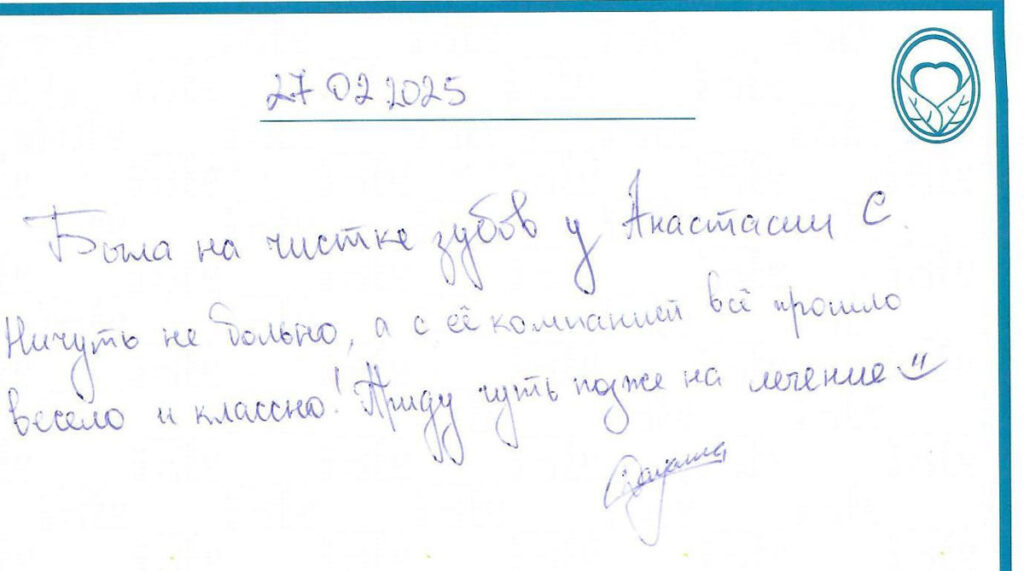 27 02 2025
Была на чистке зубов у Анастасии С.
Ничуть не больно, а с её компанией всё прошло
весело и классно! Приду чуть позже на лечение